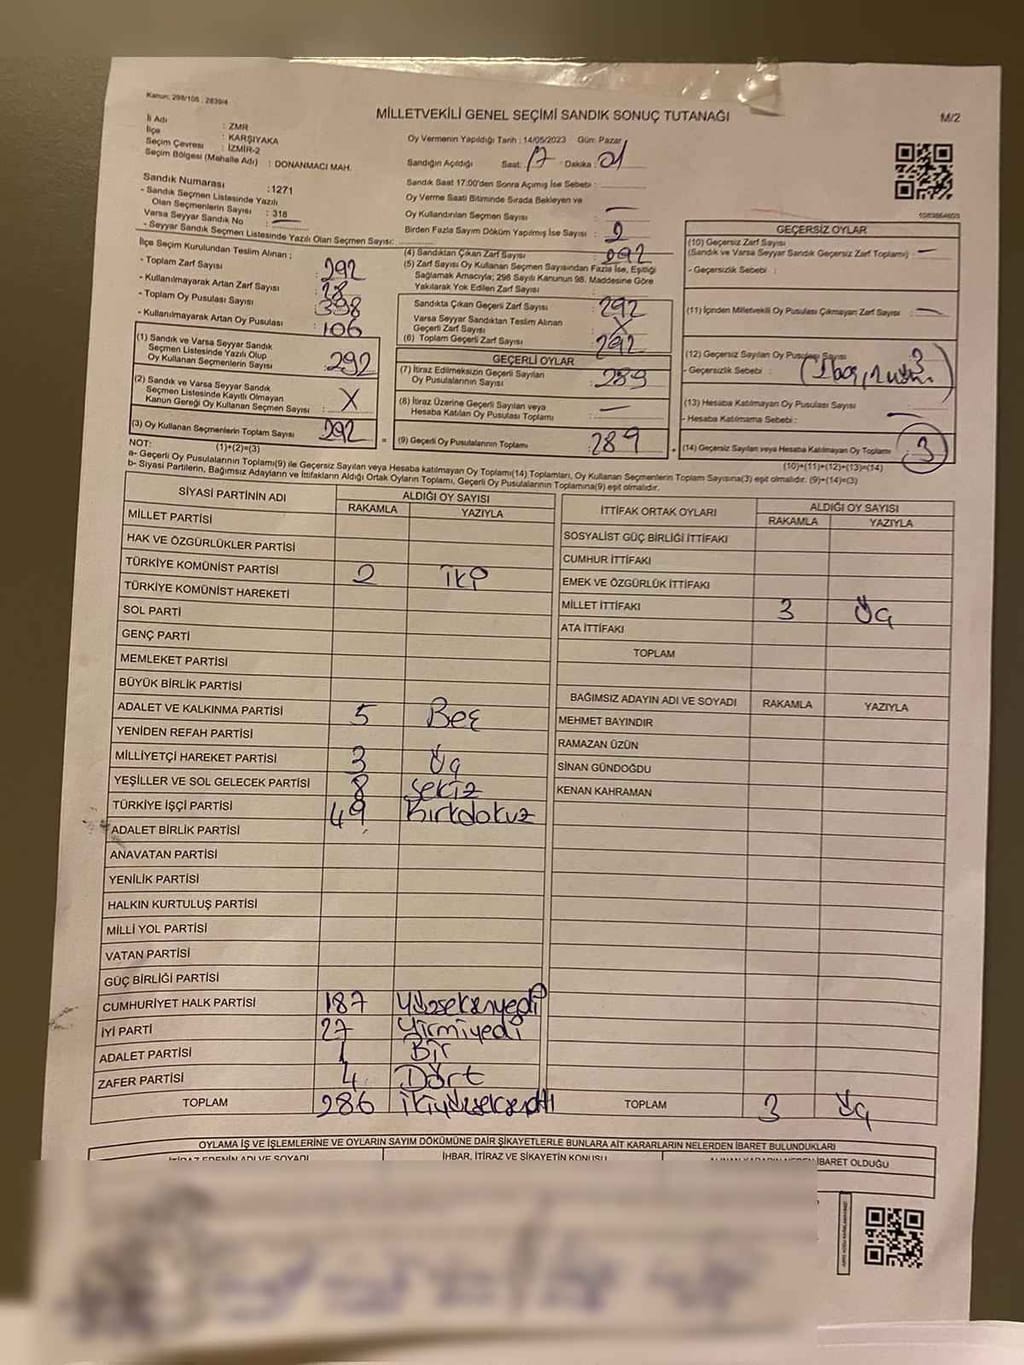 Kanun: 298/105 : 2839/4
MİLLETVEKİLİ GENEL SEÇİMİ SANDIK SONUÇ TUTANAĞI
M/2
İli Adı : ZMR
İlçe : KARŞIYAKA
Seçim Çevresi : İZMİR-2
Seçim Bölgesi (Mahalle Adı) : DONANMACI MAH.
Sandık Numarası : 1271
- Sandık Seçmen Listesinde Yazılı
Olan Seçmenlerin Sayısı : 318
Varsa Seyyar Sandık No
- Seyyar Sandık Seçmen Listesinde Yazılı Olan Seçmen Sayısı:
Oy Vermenin Yapıldığı Tarih : 14/05/2023 Gün: Pazar
Sandığın Açıldığı Saat: 17 Dakika 01
Sandık Saat 17:00'den Sonra Açımış İse Sebebi :
Oy Verme Saati Bitiminde Sırada Bekleyen ve
Oy Kullandırılan Seçmen Sayısı : —
Birden Fazla Sayım Döküm Yapılmış İse Sayısı : 2
İlçe Seçim Kurulundan Teslim Alınan ;
- Toplam Zarf Sayısı : 292
- Kullanılmayarak Artan Zarf Sayısı :
- Toplam Oy Pusulası Sayısı : 398
- Kullanılmayarak Artan Oy Pusulası : 106
(1) Sandık ve Varsa Seyyar Sandık
Seçmen Listesinde Yazılı Olup
Oy Kullanan Seçmenlerin Sayısı : 292
(2) Sandık ve Varsa Seyyar Sandık
Seçmen Listesinde Kayıtlı Olmayan
Kanun Gereği Oy Kullanan Seçmen Sayısı : X
(3) Oy Kullanan Seçmenlerin Toplam Sayısı : 292
(1)+(2)=(3)
(4) Sandıktan Çıkan Zarf Sayısı : 292
(5) Zarf Sayısı Oy Kullanan Seçmen Sayısından Fazla İse, Eşitliği
Sağlamak Amacıyla; 298 Sayılı Kanunun 98. Maddesine Göre
Yakılarak Yok Edilen Zarf Sayısı
Sandıkta Çıkan Geçerli Zarf Sayısı : 292
Varsa Seyyar Sandıktan Teslim Alınan
Geçerli Zarf Sayısı : X
(6) Toplam Geçerli Zarf Sayısı : 292
GEÇERLİ OYLAR
(7) İtiraz Edilmeksizin Geçerli Sayılan
Oy Pusulalarının Sayısı : 289
(8) İtiraz Üzerine Geçerli Sayılan veya
Hesaba Katılan Oy Pusulası Toplamı : —
(9) Geçerli Oy Pusulalarının Toplamı : 289
GEÇERSİZ OYLAR
(10) Geçersiz Zarf Sayısı
(Sandık ve Varsa Seyyar Sandık Geçersiz Zarf Toplamı) : —
- Geçersizlik Sebebi :
(11) İçinden Milletvekili Oy Pusulası Çıkmayan Zarf Sayısı : —
(12) Geçersiz Sayılan Oy Pusulası Sayısı : 3
- Geçersizlik Sebebi :
(13) Hesaba Katılmayan Oy Pusulası Sayısı : —
- Hesaba Katılmama Sebebi :
(14) Geçersiz Sayılan veya Hesaba Katılmayan Oy Toplamı : 3
(10)+(11)+(12)+(13)=(14)
NOT:
a- Geçerli Oy Pusulalarının Toplamı(9) ile Geçersiz Sayılan veya Hesaba katılmayan Oy Toplamı(14) Toplamları, Oy Kullanan Seçmenlerin Toplam Sayısına(3) eşit olmalıdır. (9)+(14)=(3)
b- Siyasi Partilerin, Bağımsız Adayların ve İttifakların Aldığı Ortak Oyların Toplamı, Geçerli Oy Pusulalarının Toplamına(9) eşit olmalıdır.
SİYASİ PARTİNİN ADI ALDIĞI OY SAYISI
RAKAMLA YAZIYLA
MİLLET PARTİSİ
HAK VE ÖZGÜRLÜKLER PARTİSİ
TÜRKİYE KOMÜNİST PARTİSİ 2 iki
TÜRKİYE KOMÜNİST HAREKETİ
SOL PARTİ
GENÇ PARTİ
MEMLEKET PARTİSİ
BÜYÜK BİRLİK PARTİSİ
ADALET VE KALKINMA PARTİSİ 5 Beş
YENİDEN REFAH PARTİSİ
MİLLİYETÇİ HAREKET PARTİSİ 3 Üç
YEŞİLLER VE SOL GELECEK PARTİSİ 8 Sekiz
TÜRKİYE İŞÇİ PARTİSİ 49 Kırkdokuz
ADALET BİRLİK PARTİSİ
ANAVATAN PARTİSİ
YENİLİK PARTİSİ
HALKIN KURTULUŞ PARTİSİ
MİLLİ YOL PARTİSİ
VATAN PARTİSİ
GÜÇ BİRLİĞİ PARTİSİ
CUMHURİYET HALK PARTİSİ 187 Yüzseksenyedi
İYİ PARTİ 27 Yirmiyedi
ADALET PARTİSİ 1 Bir
ZAFER PARTİSİ 4 Dört
TOPLAM 286 ikiyüzseksenaltı
İTTİFAK ORTAK OYLARI ALDIĞI OY SAYISI
RAKAMLA YAZIYLA
SOSYALİST GÜÇ BİRLİĞİ İTTİFAKI
CUMHUR İTTİFAKI
EMEK VE ÖZGÜRLÜK İTTİFAKI
MİLLET İTTİFAKI 3 Üç
ATA İTTİFAKI
TOPLAM
BAĞIMSIZ ADAYIN ADI VE SOYADI RAKAMLA YAZIYLA
MEHMET BAYINDIR
RAMAZAN ÜZÜN
SİNAN GÜNDOĞDU
KENAN KAHRAMAN
TOPLAM 3 Üç
OYLAMA İŞ VE İŞLEMLERİNE VE OYLARIN SAYIM DÖKÜMÜNE DAİR ŞİKAYETLERLE BUNLARA AİT KARARLARIN NELERDEN İBARET BULUNDUKLARI
İTİRAZ EDENİN ADI VE SOYADI İHBAR, İTİRAZ VE ŞİKAYETİN KONUSU ALINAN KARARIN NEDEN İBARET OLDUĞU